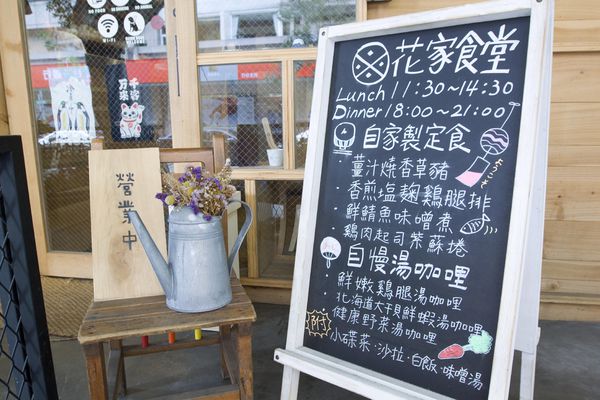 花家食堂
Lunch 11:30~14:30
Dinner 18:00~21:00
自家製定食
・薑汁燒香草豬
・香煎塩麴雞腿排
・鮮鯖魚味噌煮
・雞肉起司紫蘇捲
ようこそ
自慢湯咖哩
鮮嫩雞腿湯咖哩
北海道大干貝鮮蝦湯咖哩
健康野菜湯咖哩
附 小碟菜·沙拉·白飯·味噌湯
營業中
千客
万来